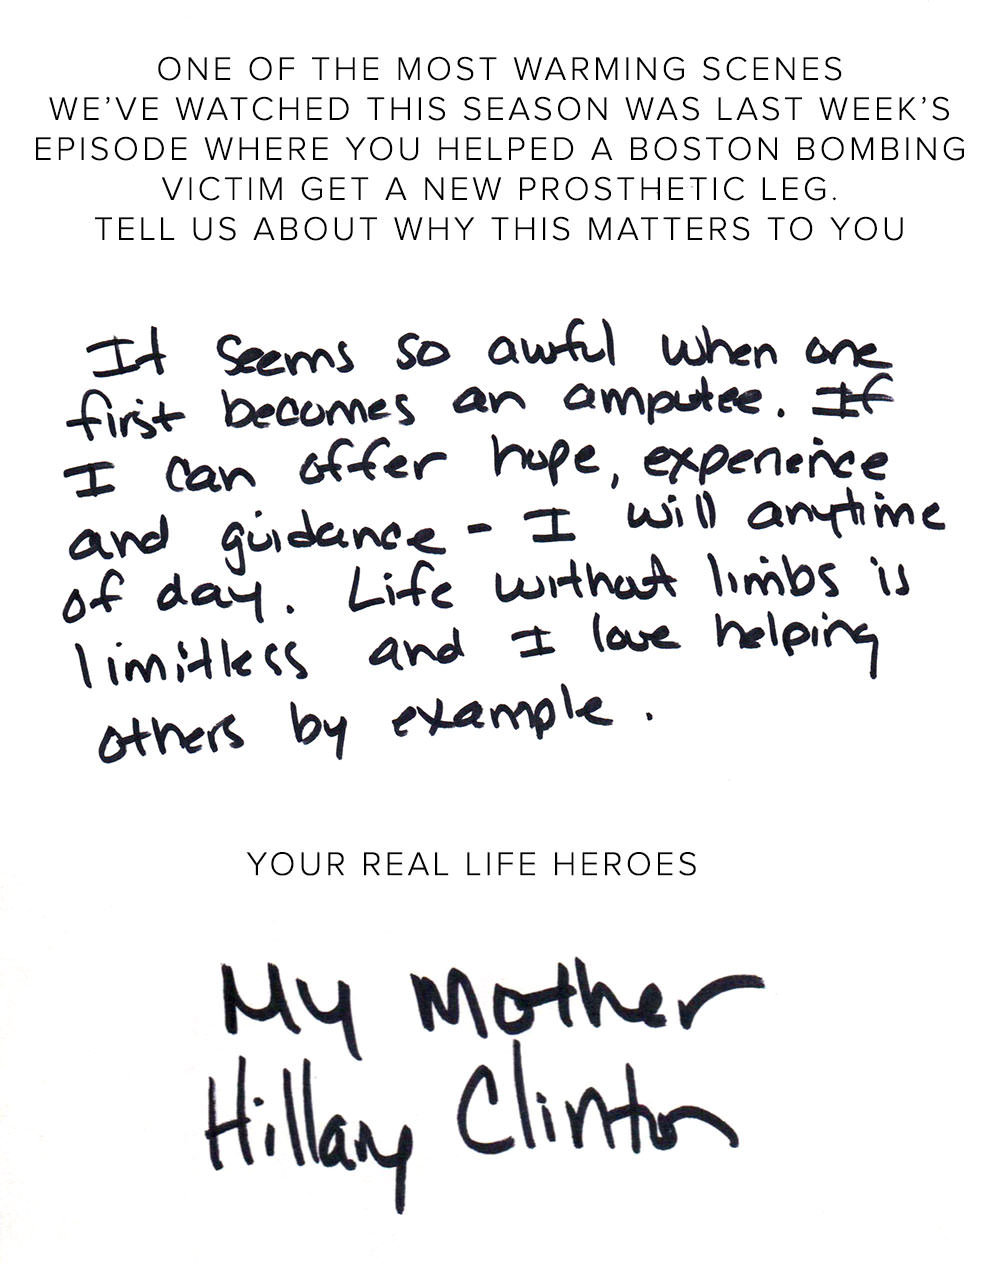 ONE OF THE MOST WARMING SCENES
WE'VE WATCHED THIS SEASON WAS LAST WEEK'S
EPISODE WHERE YOU HELPED A BOSTON BOMBING
VICTIM GET A NEW PROSTHETIC LEG.
TELL US ABOUT WHY THIS MATTERS TO YOU
It seems so awful when one
first becomes an amputee. If
I can offer hope, experience
and guidance - I will anytime
of day. Life without limbs is
limitless and I love helping
others by example.
YOUR REAL LIFE HEROES
My Mother
Hillary Clinton